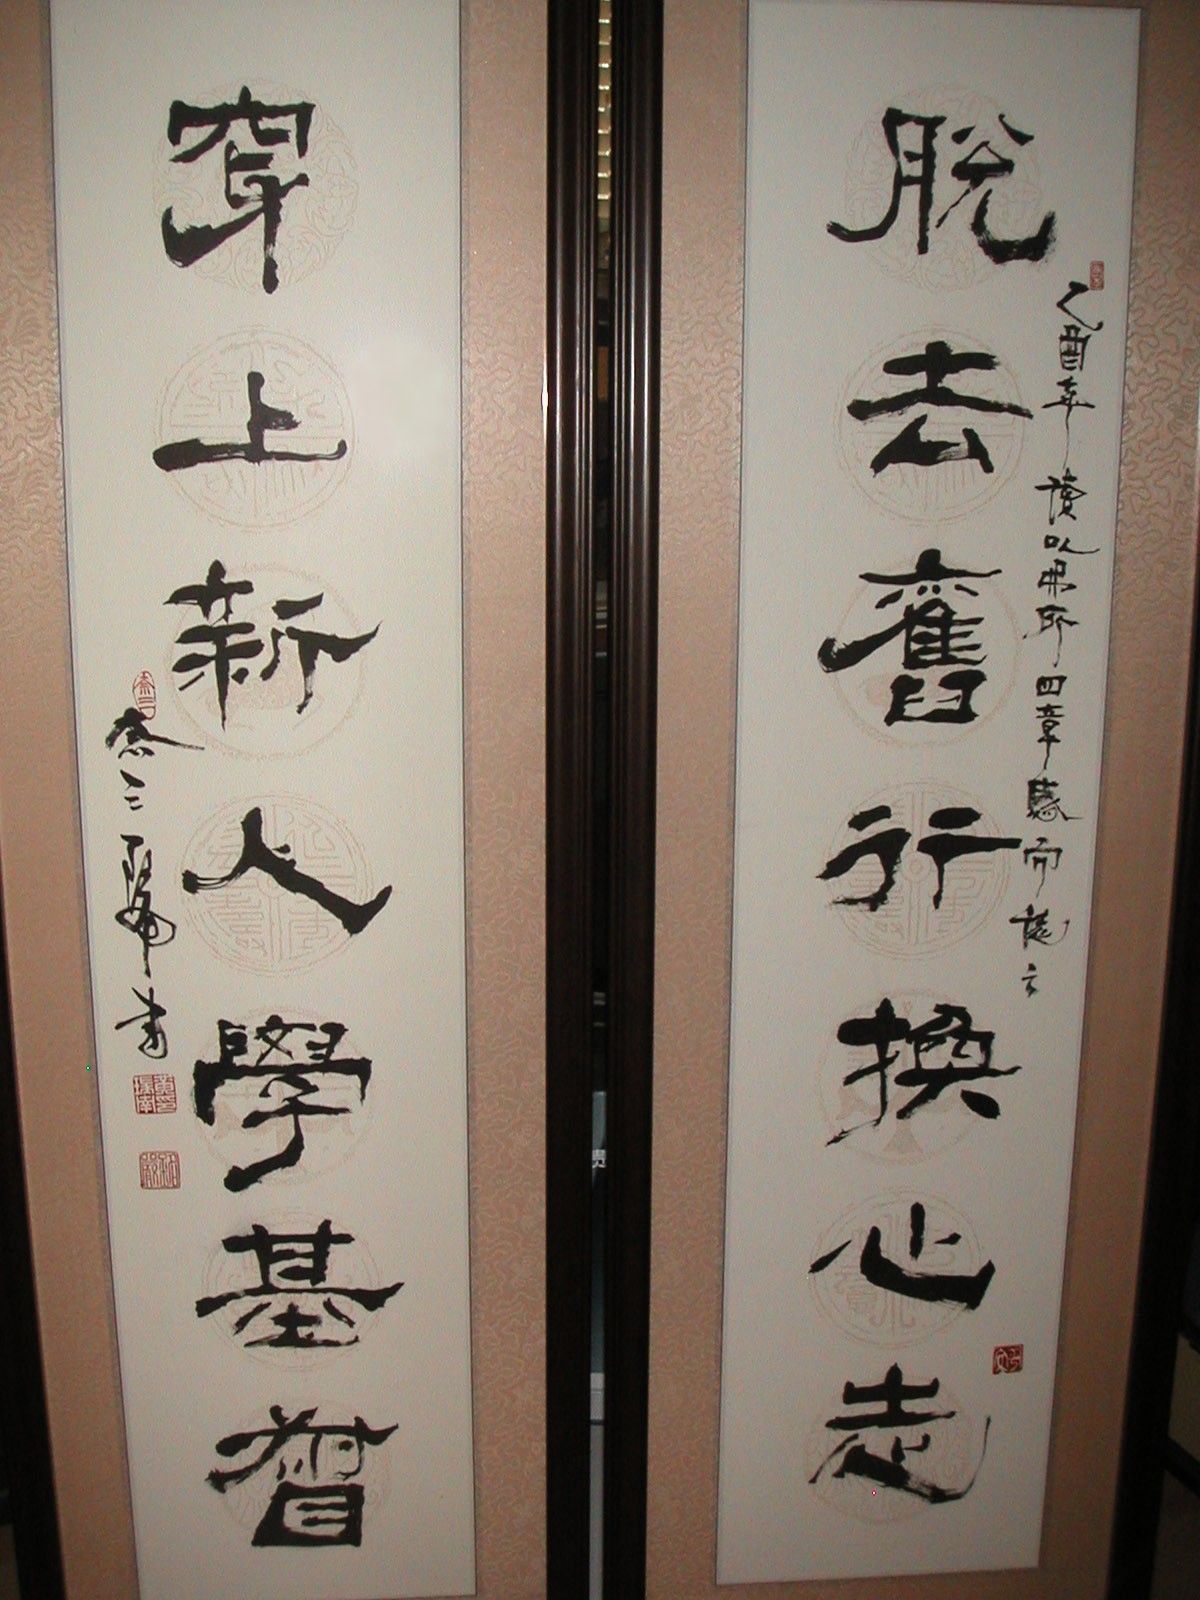 脫去舊行換心志
乙酉年 讀以弗所四章感而誌之
穿上新人學基督